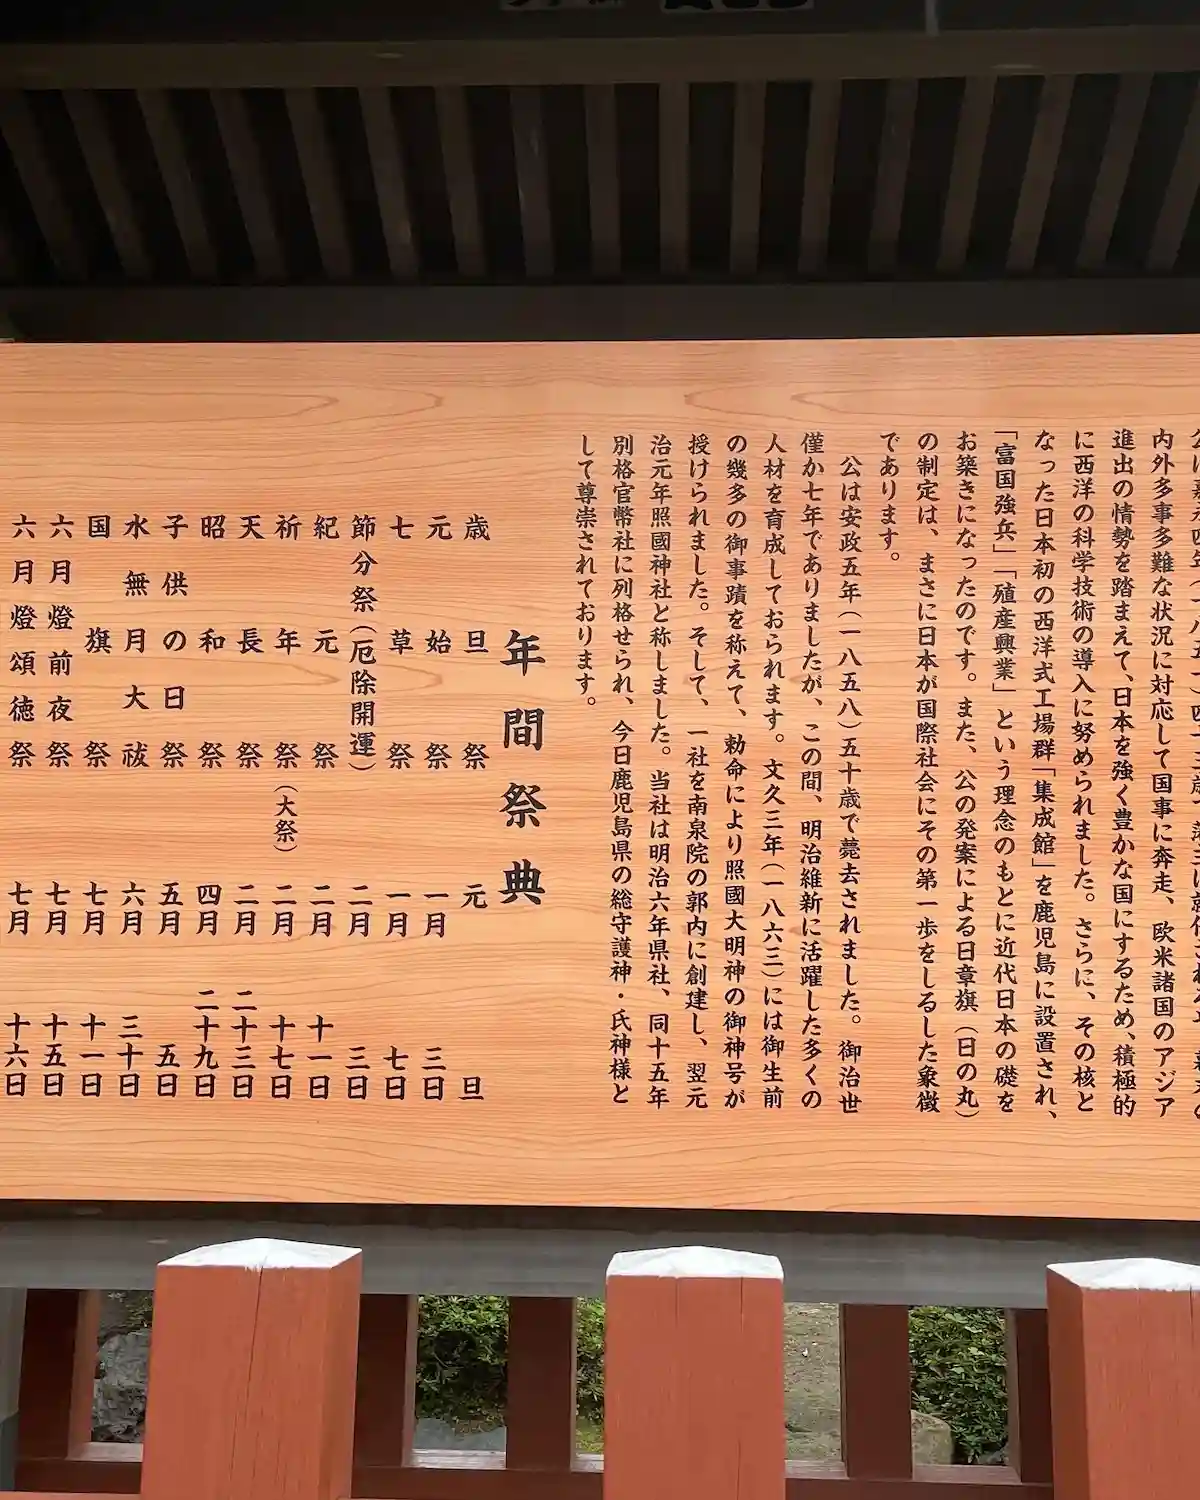 内外多事多難な状況に対応して国事に奔走、欧米諸国のアジア
進出の情勢を踏まえて、日本を強く豊かな国にするため、積極的
に西洋の科学技術の導入に努められました。さらに、その核と
なった日本初の西洋式工場群「集成館」を鹿児島に設置され、
「富国強兵」「殖産興業」という理念のもとに近代日本の礎を
お築きになったのです。また、公の発案による日章旗（日の丸）
の制定は、まさに日本が国際社会にその第一歩をしるした象徴
であります。
公は安政五年（一八五八）五十歳で薨去されました。御治世
僅か七年でありましたが、この間、明治維新に活躍した多くの
人材を育成しておられます。文久三年（一八六三）には御生前
の幾多の御事蹟を称えて、勅命により照國大明神の御神号が
授けられました。そして、一社を南泉院の郭内に創建し、翌元
治元年照國神社と称しました。当社は明治六年県社、同十五年
別格官幣社に列格せられ、今日鹿児島県の総守護神・氏神様と
して尊崇されております。
年間祭典
歳旦祭 元旦
元始祭 一月三日
七草祭 一月七日
節分祭（厄除開運） 二月三日
紀元祭 二月十一日
祈年祭（大祭） 二月十七日
天長祭 二月二十三日
昭和祭 四月二十九日
子供の日祭 五月五日
水無月大祓 六月三十日
国旗祭 七月十一日
六月燈前夜祭 七月十五日
六月燈頌徳祭 七月十六日